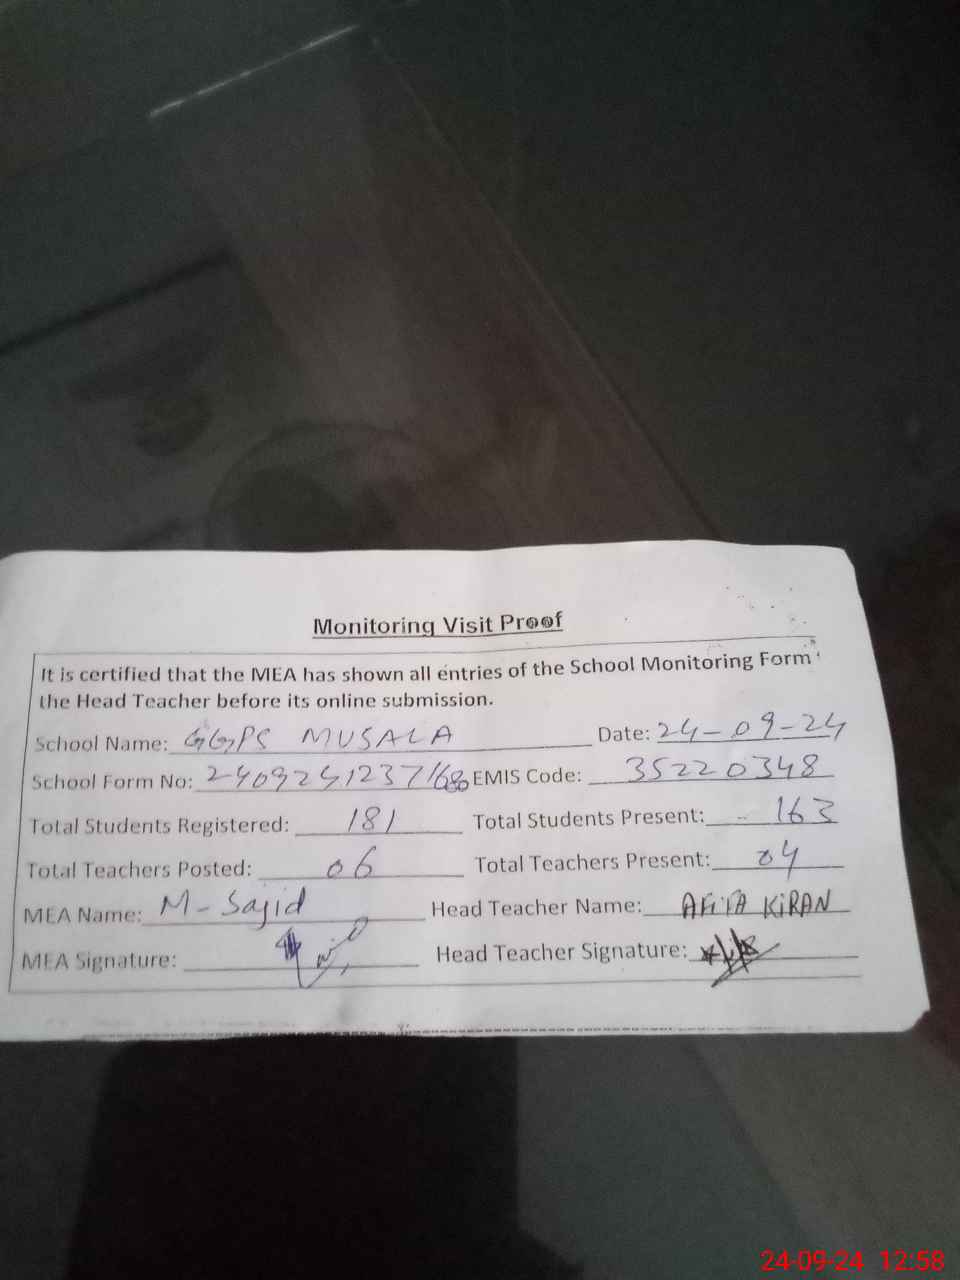 Monitoring Visit Proof
It is certified that the MEA has shown all entries of the School Monitoring Form
the Head Teacher before its online submission.
School Name: GGPS MUSALA Date: 24-09-24
School Form No: EMIS Code: 35220348
Total Students Registered: 181 Total Students Present: 163
Total Teachers Posted: 06 Total Teachers Present: 04
MEA Name: M-Sajid Head Teacher Name: KiRAN
MEA Signature: Head Teacher Signature:
24-09-24 12:58